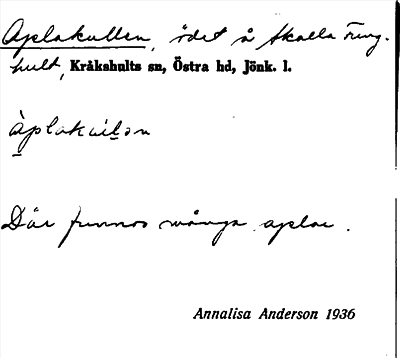 Aplakullen, ödet å Skalla Ting-
hult, Kråkshults sn, Östra hd, Jönk. l.
Där funnos många aplar.
Annalisa Anderson 1936